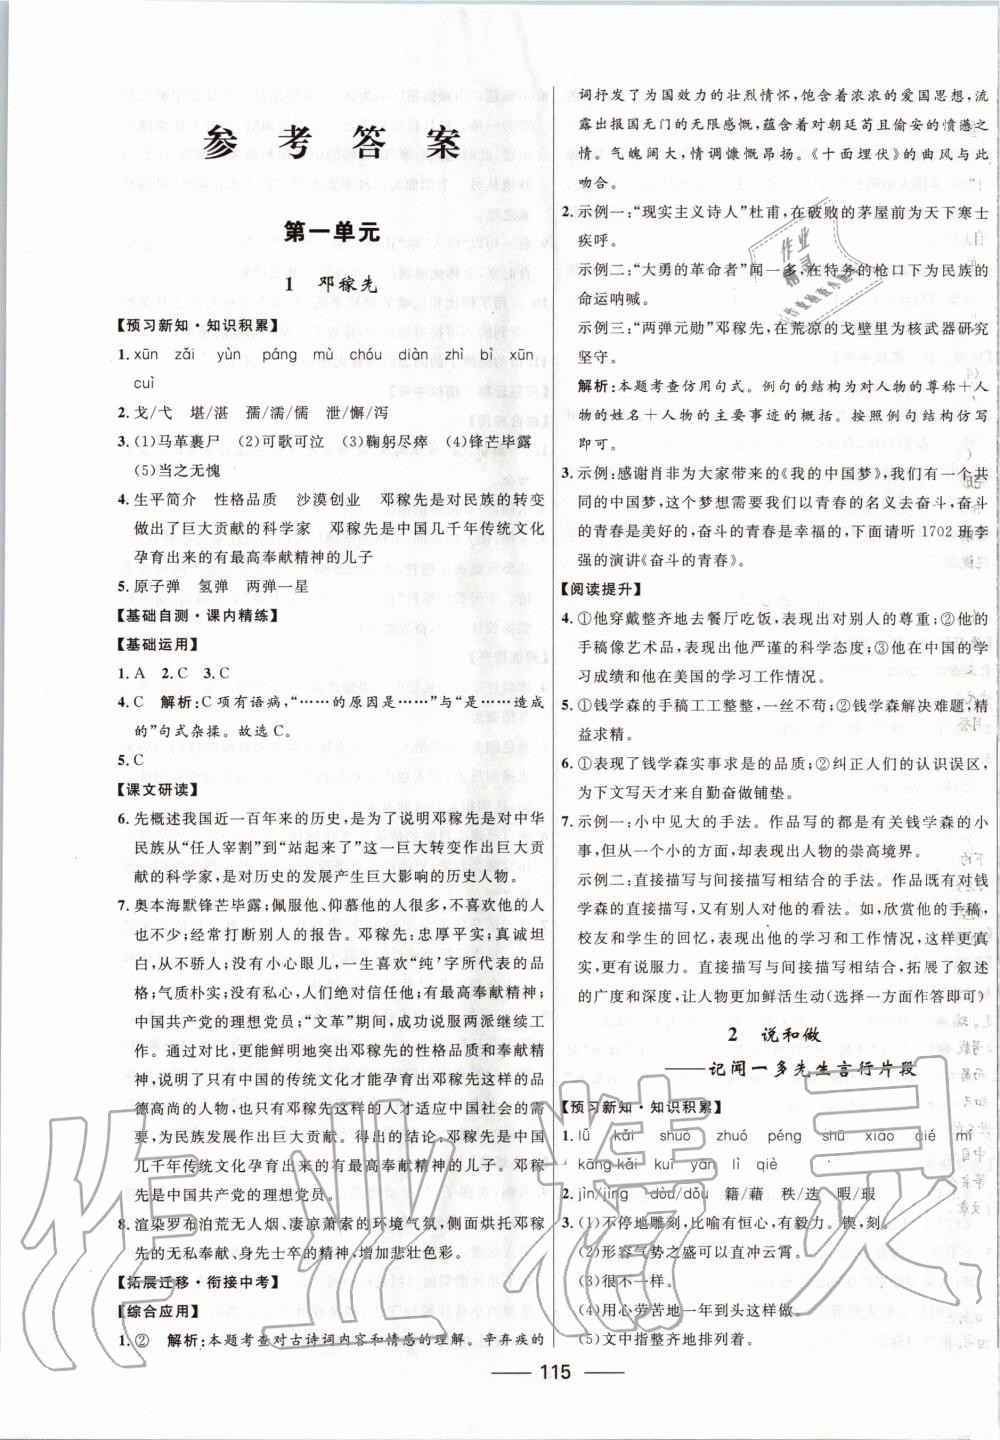 参考答案
第一单元
1 邓稼先
【预习新知·知识积累】
1. xūn zǎi yùn páng mù chóu diàn zhì bì xūn
cuì
2. 戈/弋 堪/湛 孺/濡/儒 泄/懈/泻
3. (1)马革裹尸 (2)可歌可泣 (3)鞠躬尽瘁 (4)锋芒毕露
(5)当之无愧
4. 生平简介 性格品质 沙漠创业 邓稼先是对民族的转变
做出了巨大贡献的科学家 邓稼先是中国几千年传统文化
孕育出来的有最高奉献精神的儿子
5. 原子弹 氢弹 两弹一星
【基础自测·课内精练】
【基础运用】
1. A 2. C 3. C
4. C 解析:C项有语病,“……的原因是……”与“是……造成
的”句式杂揉。故选C。
5. C
【课文研读】
6. 先概述我国近一百年来的历史,是为了说明邓稼先是对中华
民族从“任人宰割”到“站起来了”这一巨大转变作出巨大贡献
的科学家,是对历史的发展产生巨大影响的历史人物。
7. 奥本海默锋芒毕露;佩服他、仰慕他的人很多,不喜欢他的人
也不少;经常打断别人的报告。邓稼先:忠厚平实;真诚坦
白,从不骄人;没有小心眼儿,一生喜欢“纯”字所代表的品
格;气质朴实;没有私心,人们绝对信任他;有最高奉献精神;
中国共产党的理想党员;“文革”期间,成功说服两派继续工
作。通过对比,更能鲜明地突出邓稼先的性格品质和奉献精
神,说明了只有中国的传统文化才能孕育出邓稼先这样的品
德高尚的人物,也只有邓稼先这样的人才适应中国社会的需
要,为国家发展作出巨大贡献。得出的结论:邓稼先是中国
几千年传统文化孕育出来的有最高奉献精神的儿子。邓稼
先是中国共产党的理想党员。
8. 渲染罗布泊荒无人烟、凄凉萧索的环境气氛,侧面烘托邓稼
先的无私奉献、身先士卒的精神,增加悲壮色彩。
【拓展迁移·衔接中考】
【综合应用】
1. ② 解析:本题考查对古诗词内容和情感的理解。辛弃疾的
词抒发了为国效力的壮烈情怀,饱含着浓浓的爱国思想,流
露出报国无门的无限感慨,蕴含着对朝廷苟且偷安的愤懑之
情。气魄阔大,情调慷慨昂扬。《十面埋伏》的曲风与此
吻合。
2. 示例一:“现实主义诗人”杜甫,在破败的茅屋前为天下寒士
疾呼。
示例二:“大勇的革命者”闻一多,在特务的枪口下为民族的
命运呐喊。
示例三:“两弹元勋”邓稼先,在荒凉的戈壁里为核武器研究
坚守。
解析:本题考查仿用句式。例句的结构为对人物的尊称+人
物的姓名+人物的主要事迹的概括。按照例句结构仿写
即可。
3. 示例:感谢肖非为大家带来的《我的中国梦》,我们有一个共
同的中国梦,这个梦想需要我们以青春的名义去奋斗,奋斗
的青春是美好的,奋斗的青春是幸福的,下面请听1702班李
强的演讲《奋斗的青春》。
【阅读提升】
4. ①他穿戴整齐地去餐厅吃饭,表现出对别人的尊重;②他的
手稿像艺术品,表现出他严谨的科学态度;③他在中国的学
习成绩和他在美国的学习工作情况。
5. ①钱学森的手稿工工整整,一丝不苟;②钱学森解决难题,精
益求精。
6. ①表现了钱学森实事求是的品质;②纠正人们的认识误区,
为下文写天才来自勤奋做铺垫。
7. 示例一:小中见大的手法。作品写的都是有关钱学森的小
事,但从一个小的方面,却表现出人物的崇高境界。
示例二:直接描写与间接描写相结合的手法。作品既有对钱
学森的直接描写,又有别人对他的看法。如,欣赏他的手稿,
校友和学生的回忆,表现出他的学习和工作情况,这样更真
实,更有说服力。直接描写与间接描写相结合,拓展了叙述
的广度和深度,让人物更加鲜活生动(选择一方面作答即可)
2 说和做
——记闻一多先生言行片段
【预习新知·知识积累】
1. lǔ kǎi shuò zhuó péng shū xiāo qié mí
kāng kǎi kuì yán lì qiè
2. jìn/jìng dòu/dǒu 籍/藉 秩/迭 暇/瑕
3. (1)不停地雕刻,比喻有恒心,有毅力。锲,刻。
(2)形容气势之盛可以直冲云霄。
(3)
(4)用心劳苦地一年到头这样做。
(5)文中指整齐地排列着。
115
作业精灵